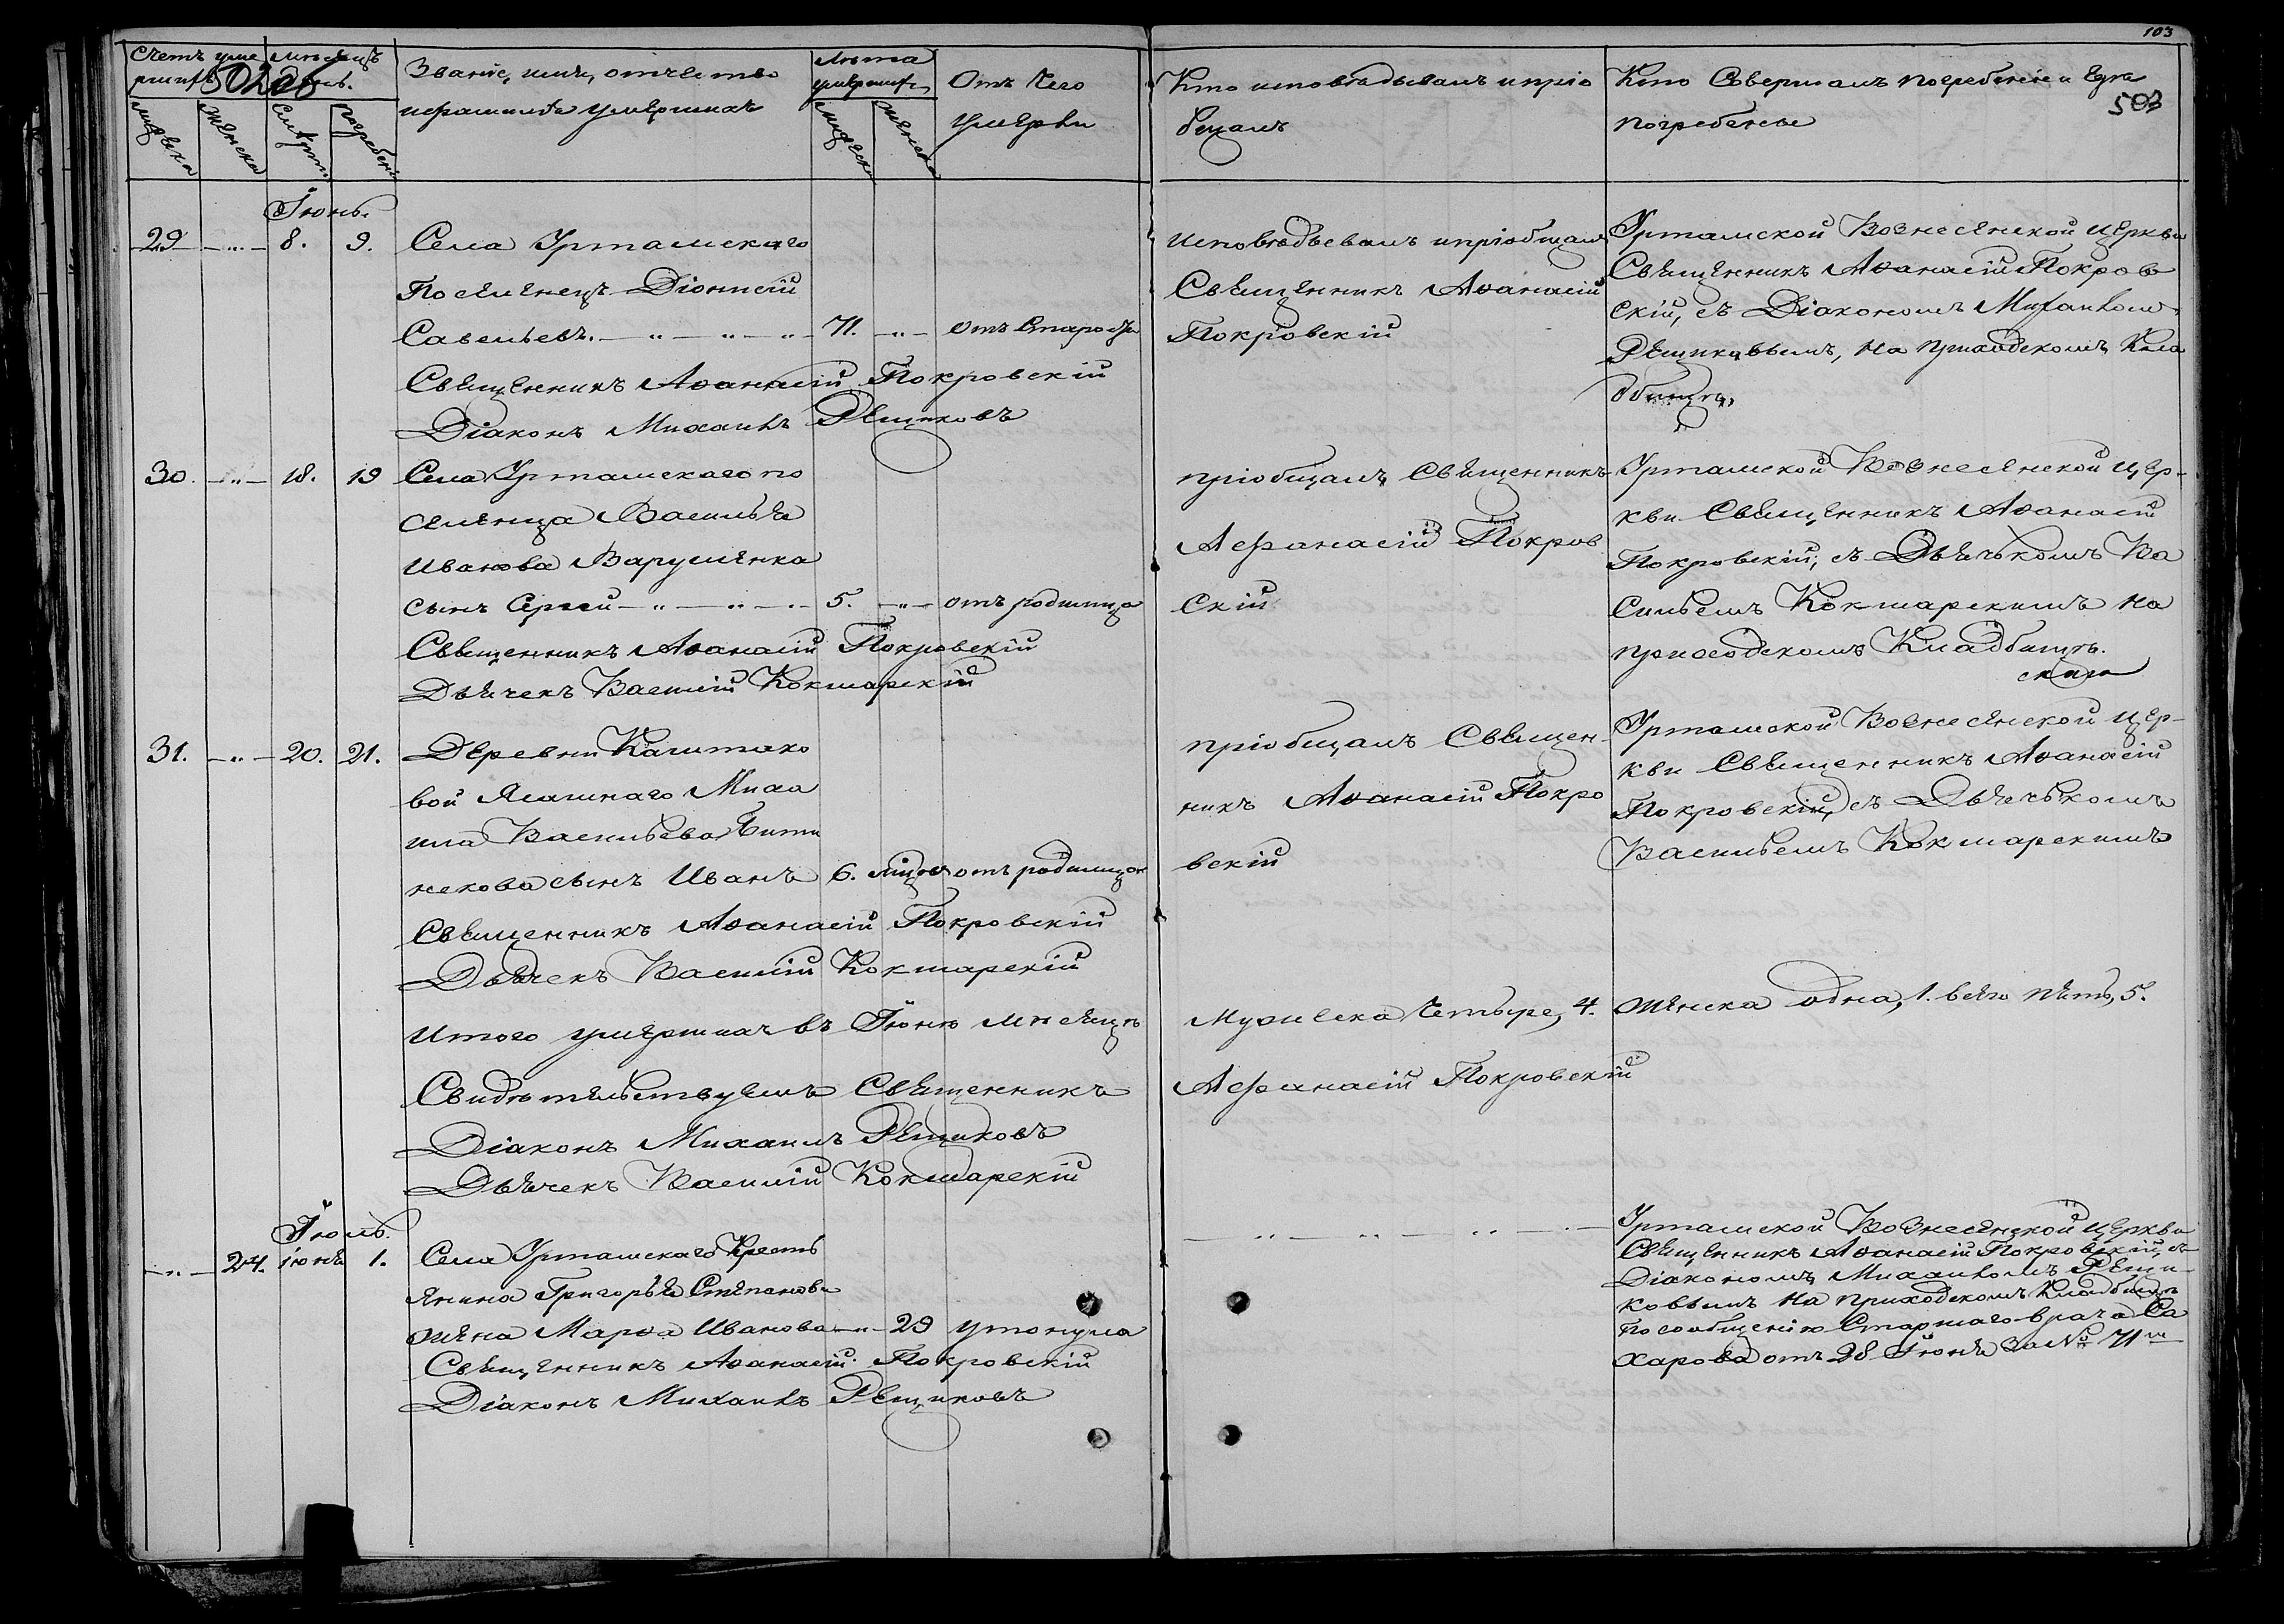 103
Счетъ уме
ршихъ
502об
Мѣсяцъ
день.
Званіе, имя, отчество
и фамилія умершихъ
Лѣта
умершихъ
Отъ чего
умерли
Кто исповѣдывалъ и пріо
бщалъ
Кто Совершалъ погребеніе и где
погребены
503
мужеска
женска
Смерти
погребенія
мужеска
женска
Іюнь.
29 — „ — 8. 9. Села Уртамскаго
Поселенецъ Діонисій
Савельевъ. — „ — „ — „ 71. — „ — отъ Старости
Священникъ Аѳанасій Покровскій
Діаконъ Михаилъ Рещиковъ
Исповѣдывалъ и пріобщалъ
Священникъ Аѳанасій
Покровскій
Уртамской Вознесенской церкви
Священникъ Аѳанасій Покров
скій, съ Діакономъ Михаиломъ
Рещиковымъ, на приходскомъ Кла
дбищѣ,
30. — „ — 18. 19 Села Уртамскаго по
селенца Василья
Иванова Варуменка
сынъ Сергей — „ — „ — 5. — „ — отъ родимца
Священникъ Аѳанасій Покровскій
Дьячекъ Василій Кокшарскій
пріобщалъ Священникъ
Афанасій Покров
скій
Уртамской Вознесенской цер-
кви Священникъ Аѳанасій
Покровскій, съ Дьячькомъ Ва
сильемъ Кокшарскимъ на
приходскомъ Кладбищѣ.
31. — „ — 20. 21. Деревни Каштако
вой Ясашнаго Миха
ила Васильева
сынъ Иванъ 6. мцовъ отъ родимца
Священникъ Аѳанасій Покровскій
Дьячекъ Василій Кокшарскій
пріобщалъ Священ-
никъ Аѳанасій Покро
вскій
Уртамской Вознесенской цер-
кви Священникъ Аѳанасій
Покровскій, съ Дьячькомъ
Васильемъ Кокшарскимъ
Итого умершихъ въ Іюнѣ мѣсяцѣ
Мужеска Четыре, 4. женска одна, 1. всего пять, 5.
Свидѣтельствуемъ Священникъ
Афанасій Покровскій
Діаконъ Михаилъ Рещиковъ
Дьячекъ Василій Кокшарскій
Іюль.
— „ — 24. іюня 1. Села Уртамскаго Кресть
янина Григорья Степанова
жена Марѳа Иванова — „ — 29 утонула
Священникъ Аѳанасій Покровскій
Діаконъ Михаилъ Рещиковъ
— „ — „ — „ — „ —
Уртамской Вознесенской церкви
Священникъ Аѳанасій Покровскій, съ
Діакономъ Михаиломъ Рещи-
ковымъ на приходскомъ Кладбищѣ
по сообщенію Старшаго врача Са
харова отъ 28 Іюня За № 71м